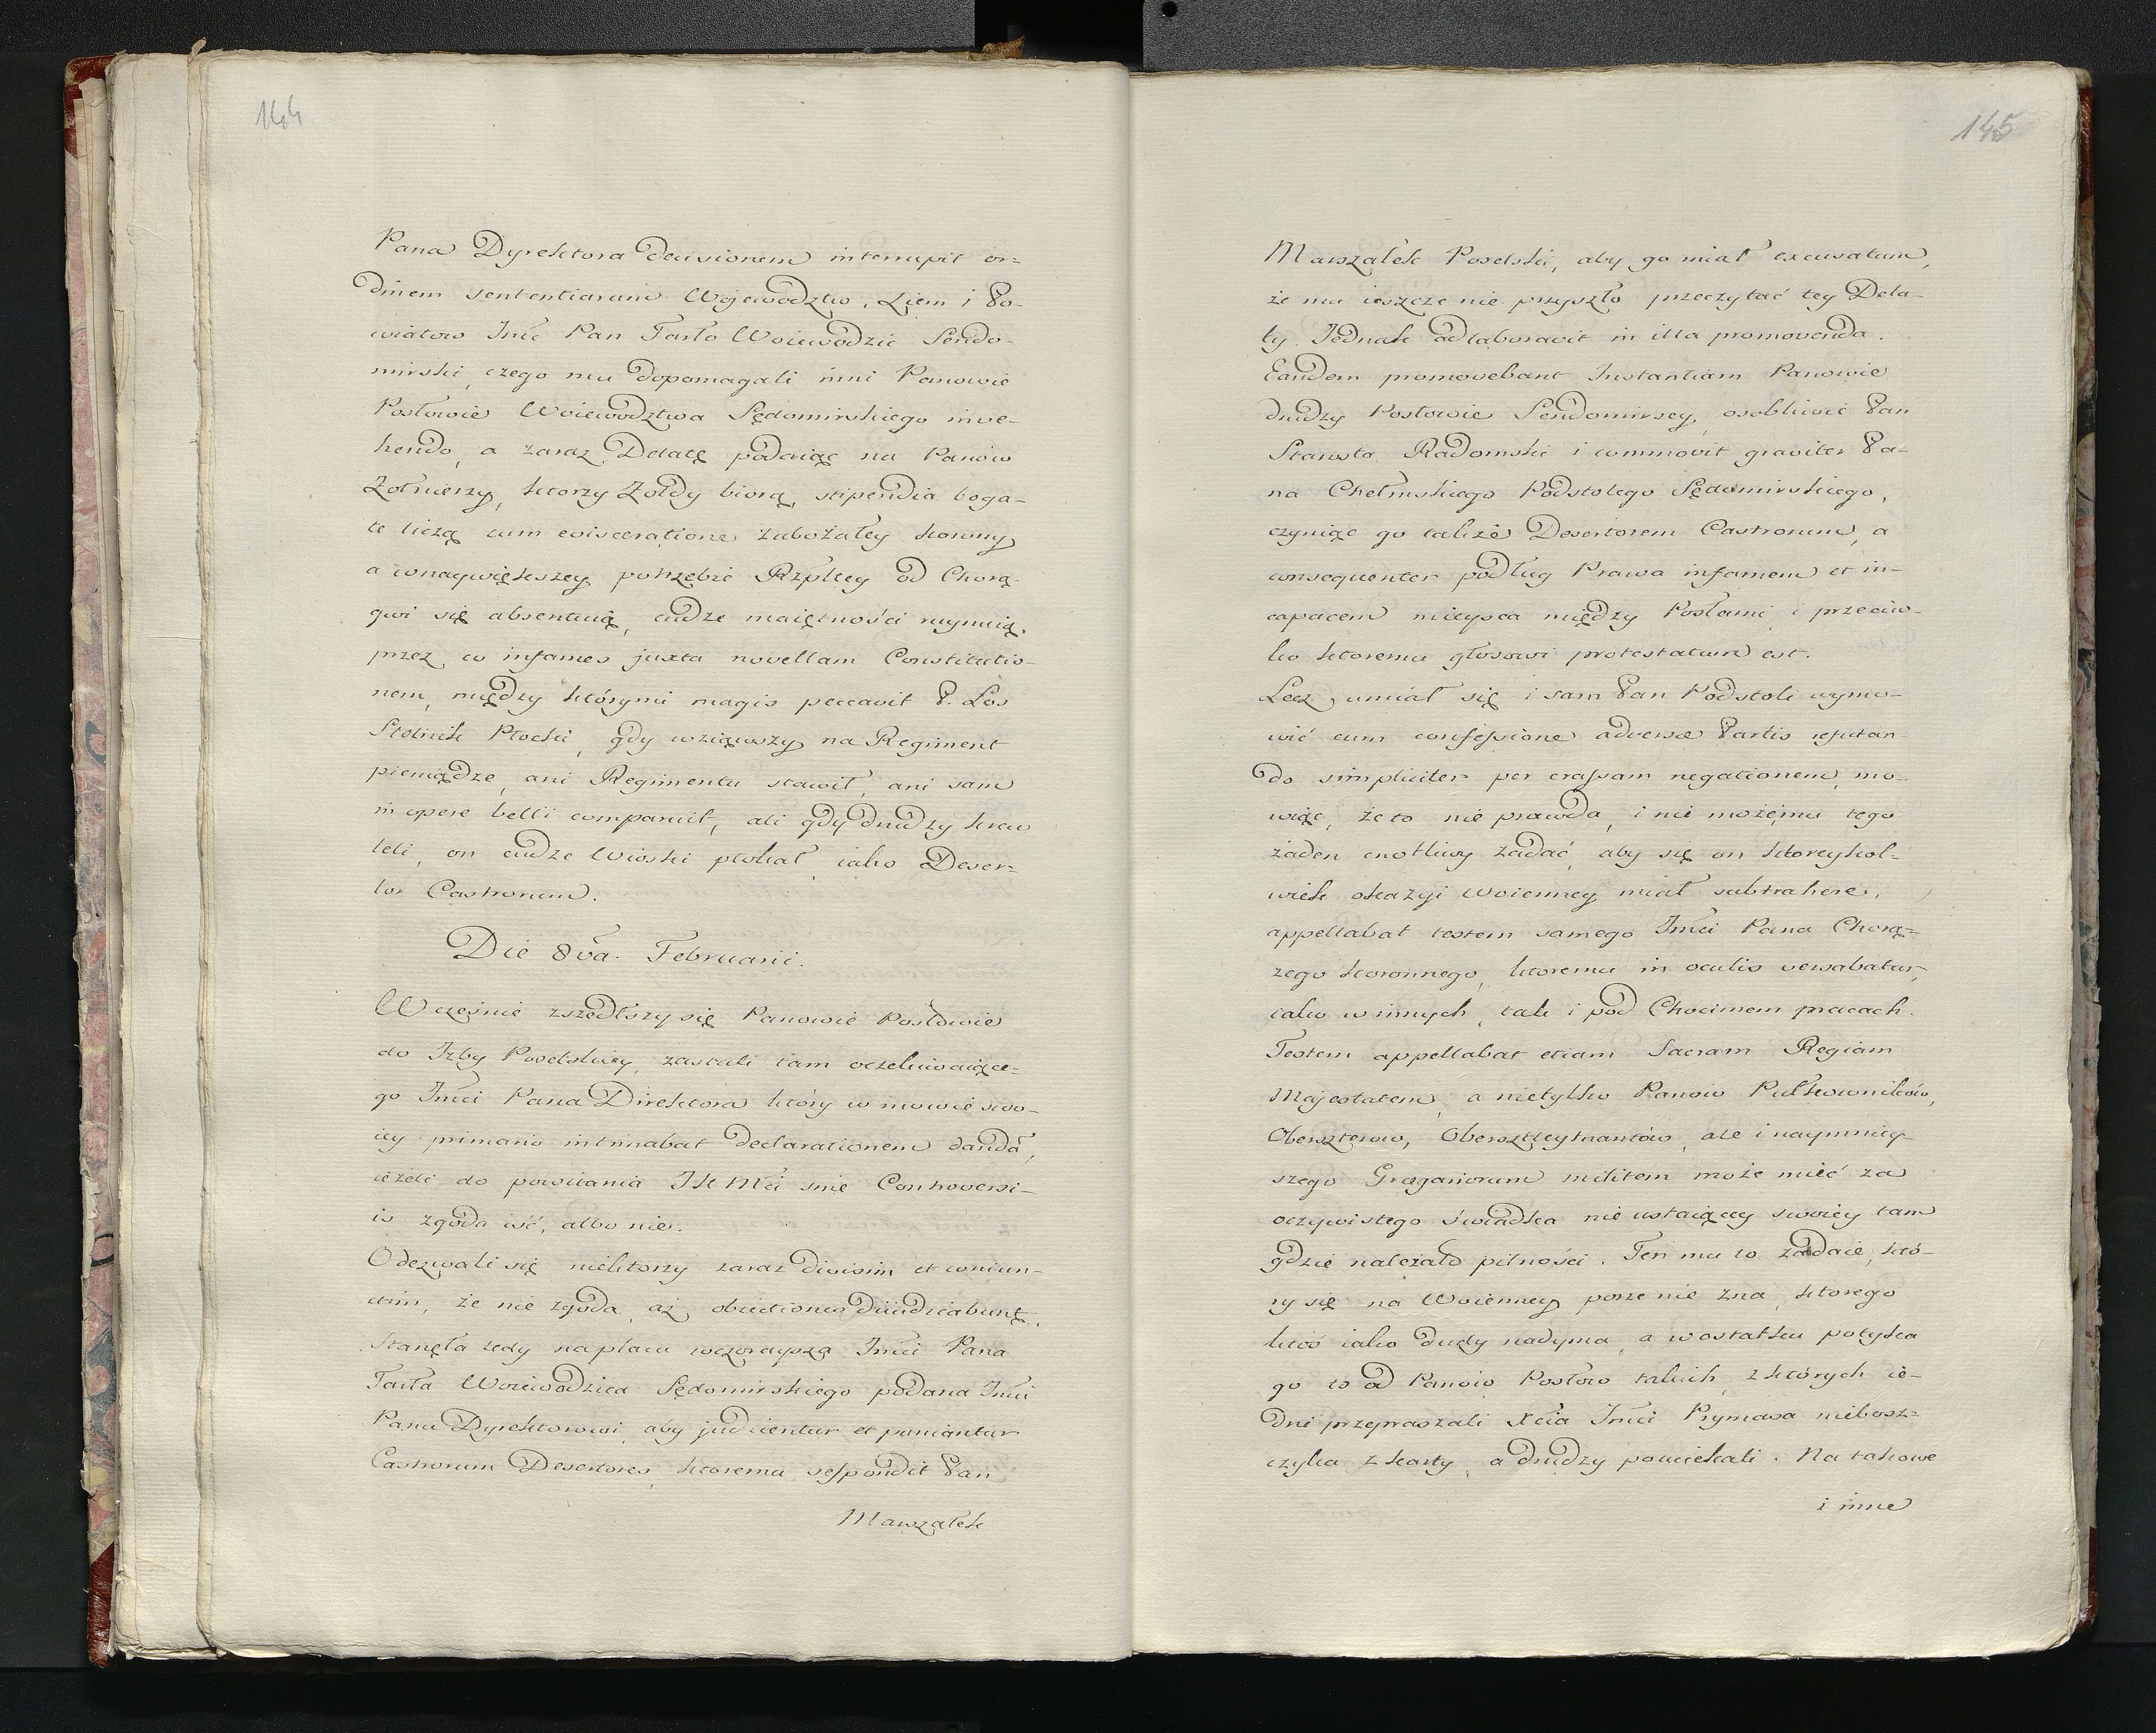 144
Pana Dyrektora decisionem interrupit or=
dinem sententiarum Wojewodztw, Ziem i Po-
wiatow Jmć Pan Tarło Woiewodzic Sendo-
mirski, czego mu dopomagali inni Panowie
Posłowie Woiewodztwa Sędomirskiego inve-
hendo, a zaraz Delatę podaiąc na Panow
Zołnierzy, ktorzy Zołdy biorą, stipendia boga-
te liczą cum evisceratione zubożałey korony
a wnaywiększey potrzebie Rzpltey od Chorą-
gwi się absentuią, cudze maiętności naymuią,
przez co infames juxta novellam Constitutio-
nem, między którymi magis peccavit P. Los
Stolnik Płocki, gdy wziąwszy na Regiment
pieniądze, ani Regimentu stawił, ani sam
in opere belli comparuit, ali gdy drudzy krew
leli, on cudze Wioski plokał, iako Deser=
tor Castrorum.
Die 8va. Februarii.
Wcześnie zszedłszy się Panowie Posłowie
do Izby Poselskiey, zastali tam oczekiwaiące=
go Jmci Pana Direktora który w mowie swo-
iey primario intimabat declarationem dandã,
ieżeli do powitania JK Mci sine Controversi-
is zgoda iść, albo nie.
Odezwali się niektorzy zaraz divisim et coniun-
ctim, że nie zgoda, aż obiectiones diiudicabunt.
Stanęła tedy na placu wczorajsza Jmci Pana
Tarła Woiewodzica Sędomirskiego podana Jmci
Panu Dyrektorowi, aby judicentur et puniantur
Castrorum Desertores, ktoremu respondit Pan
Marszałek
145
Marszałek Poselski, aby go miał excusatum,
że mu ieszcze nie przyszło przeczytać tey Dela-
ty. Jednak adlaboravit in illa promovenda.
Eandem promovebant Instantiam Panowie
drudzy Posłowie Sendomirscy, osobliwie Pan
Starosta Radomski i commovit graviter Pa-
na Chełmskiego Podstolego Sędomirskiego,
czyniąc go także Desertorem Castrorum, a
consequenter podług Prawa infamem et in-
capacem mieysca między Posłami, i przeciw-
ko ktoremu głosowi protestatum est.
Lecz umiał się i sam Pan Podstoli wymo-
wić cum confessione adversæ Partis reputan-
do simpliciter per crassam negationem, mo-
wiąc, że to nie prawda, i nie może mu tego
żaden cnotliwy zadać, aby się on ktoreykol=
wiek okazyi Woienney miał subtrahere,
appellabat testem samego Jmci Pana Chorą=
zego koronnego, ktoremu in oculis versabatur,
iako w innych, tak i pod Chocimem pracach.
Testem appellabat etiam Sacram Regiam
Majestatem, a nietylko Panow Pułkowników,
Oberszterow, Obersztleytnantów, ale i naymniey-
szego Gregariorum militem może mieć za
oczywistego świadka nie ustaiącey swoiey tam
gdzie należało pilności. Ten mu to zadaie, któ-
ry się na Woienney porze nie zna, ktorego
ktoś iako dudy nadyma, a w ostatku potyka
go to od Panow Posłow takich, z których ie-
dni przepraszali Xcia Jmci Prymasa niebosz=
czyka z karty, a drudzy pouciekali. Na takowe
i inne